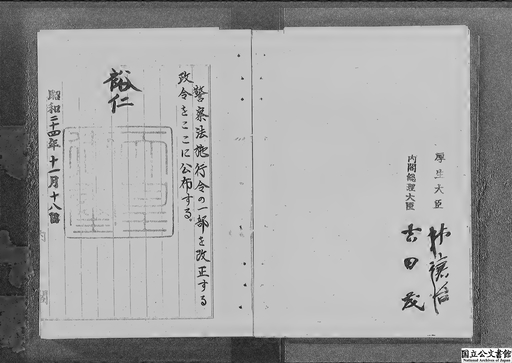 警察法施行令の一部を改正する
政令をここに公布する
裕仁
昭和二十四年十一月十八日
厚生大臣
林讓治
内閣総理大臣
吉田茂
国立公文書館
National Archives of Japan